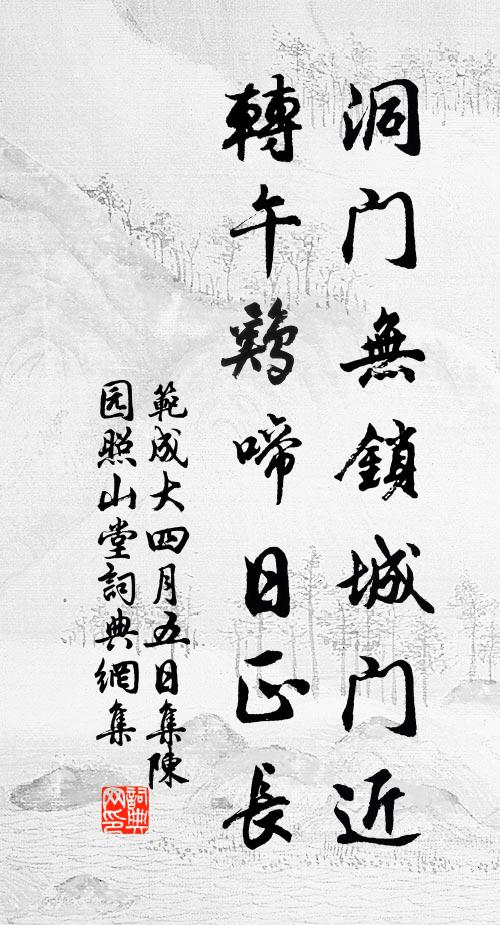 洞門無鎖城門近
轉午鷄啼日正長
範成大四月五日集陳
园照山堂詞典網集